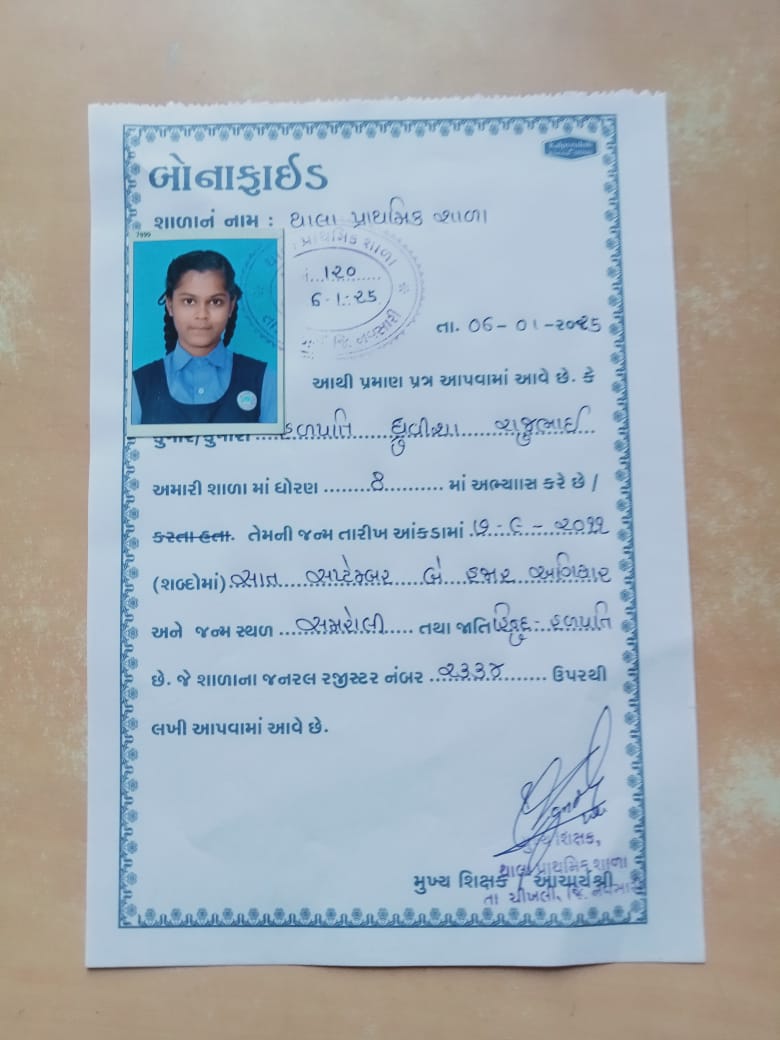 બોનાફાઈડ
શાળાનું નામ : થાલા પ્રાથમિક શાળા
7999
પ્રાથમિક શાળા
નં. ૧૨૦
૬-૧-૨૫
જિ. નવસારી
તા. ૦૬-૦૧-૨૦૨૫
આથી પ્રમાણ પત્ર આપવામાં આવે છે. કે
કુમાર/કુમારી હળપતિ ધ્રુવીશા રાજુભાઈ
અમારી શાળા માં ધોરણ ૪ માં અભ્યાાસ કરે છે /
કરતા હતા. તેમની જન્મ તારીખ આંકડામાં ૭-૯-૨૦૧૧
(શબ્દોમાં) સાત સપ્ટેમ્બર બે હજાર અગિયાર
અને જન્મ સ્થળ સમરોલી તથા જાતિ હિન્દુ-હળપતિ
છે. જે શાળાના જનરલ રજીસ્ટર નંબર ૨૩૩૪ ઉપરથી
લખી આપવામાં આવે છે.
મુખ્ય શિક્ષક,
થાલા પ્રાથમિક શાળા
મુખ્ય શિક્ષક / આચાર્યશ્રી
તા ચીખલી, જિ. નવસારી